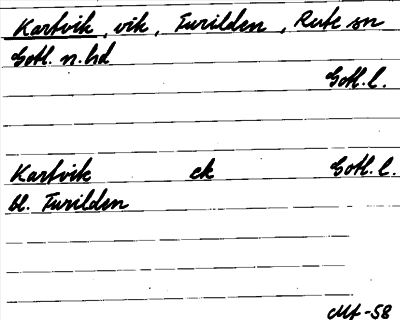 Kartvik, vik, Furilden, Rute sn
Gotl. n. hd
Gotl. l.
Kartvik ek Gotl. l.
bl. Furilden
Mf-58